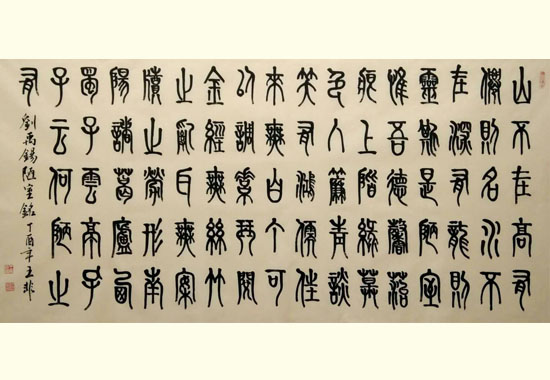 山不在高有
僊則名水不
在深有龍則
靈斯是陋室
惟吾德馨苔
痕上階綠草
色入簾青談
笑有鴻儒往
來無白丁可
以調素琴閱
金經無絲竹
之亂耳無案
牘之勞形南
陽諸葛廬西
蜀子雲亭孔
子云何陋之
有
劉禹錫陋室銘丁酉年王非